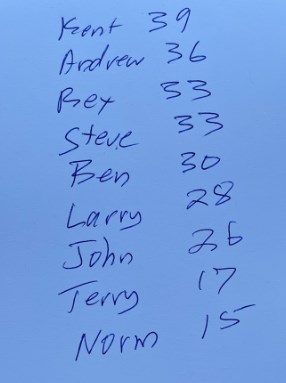 Kent 39
Andrew 36
Rex 33
Steve 33
Ben 30
Larry 28
John 26
Terry 17
Norm 15